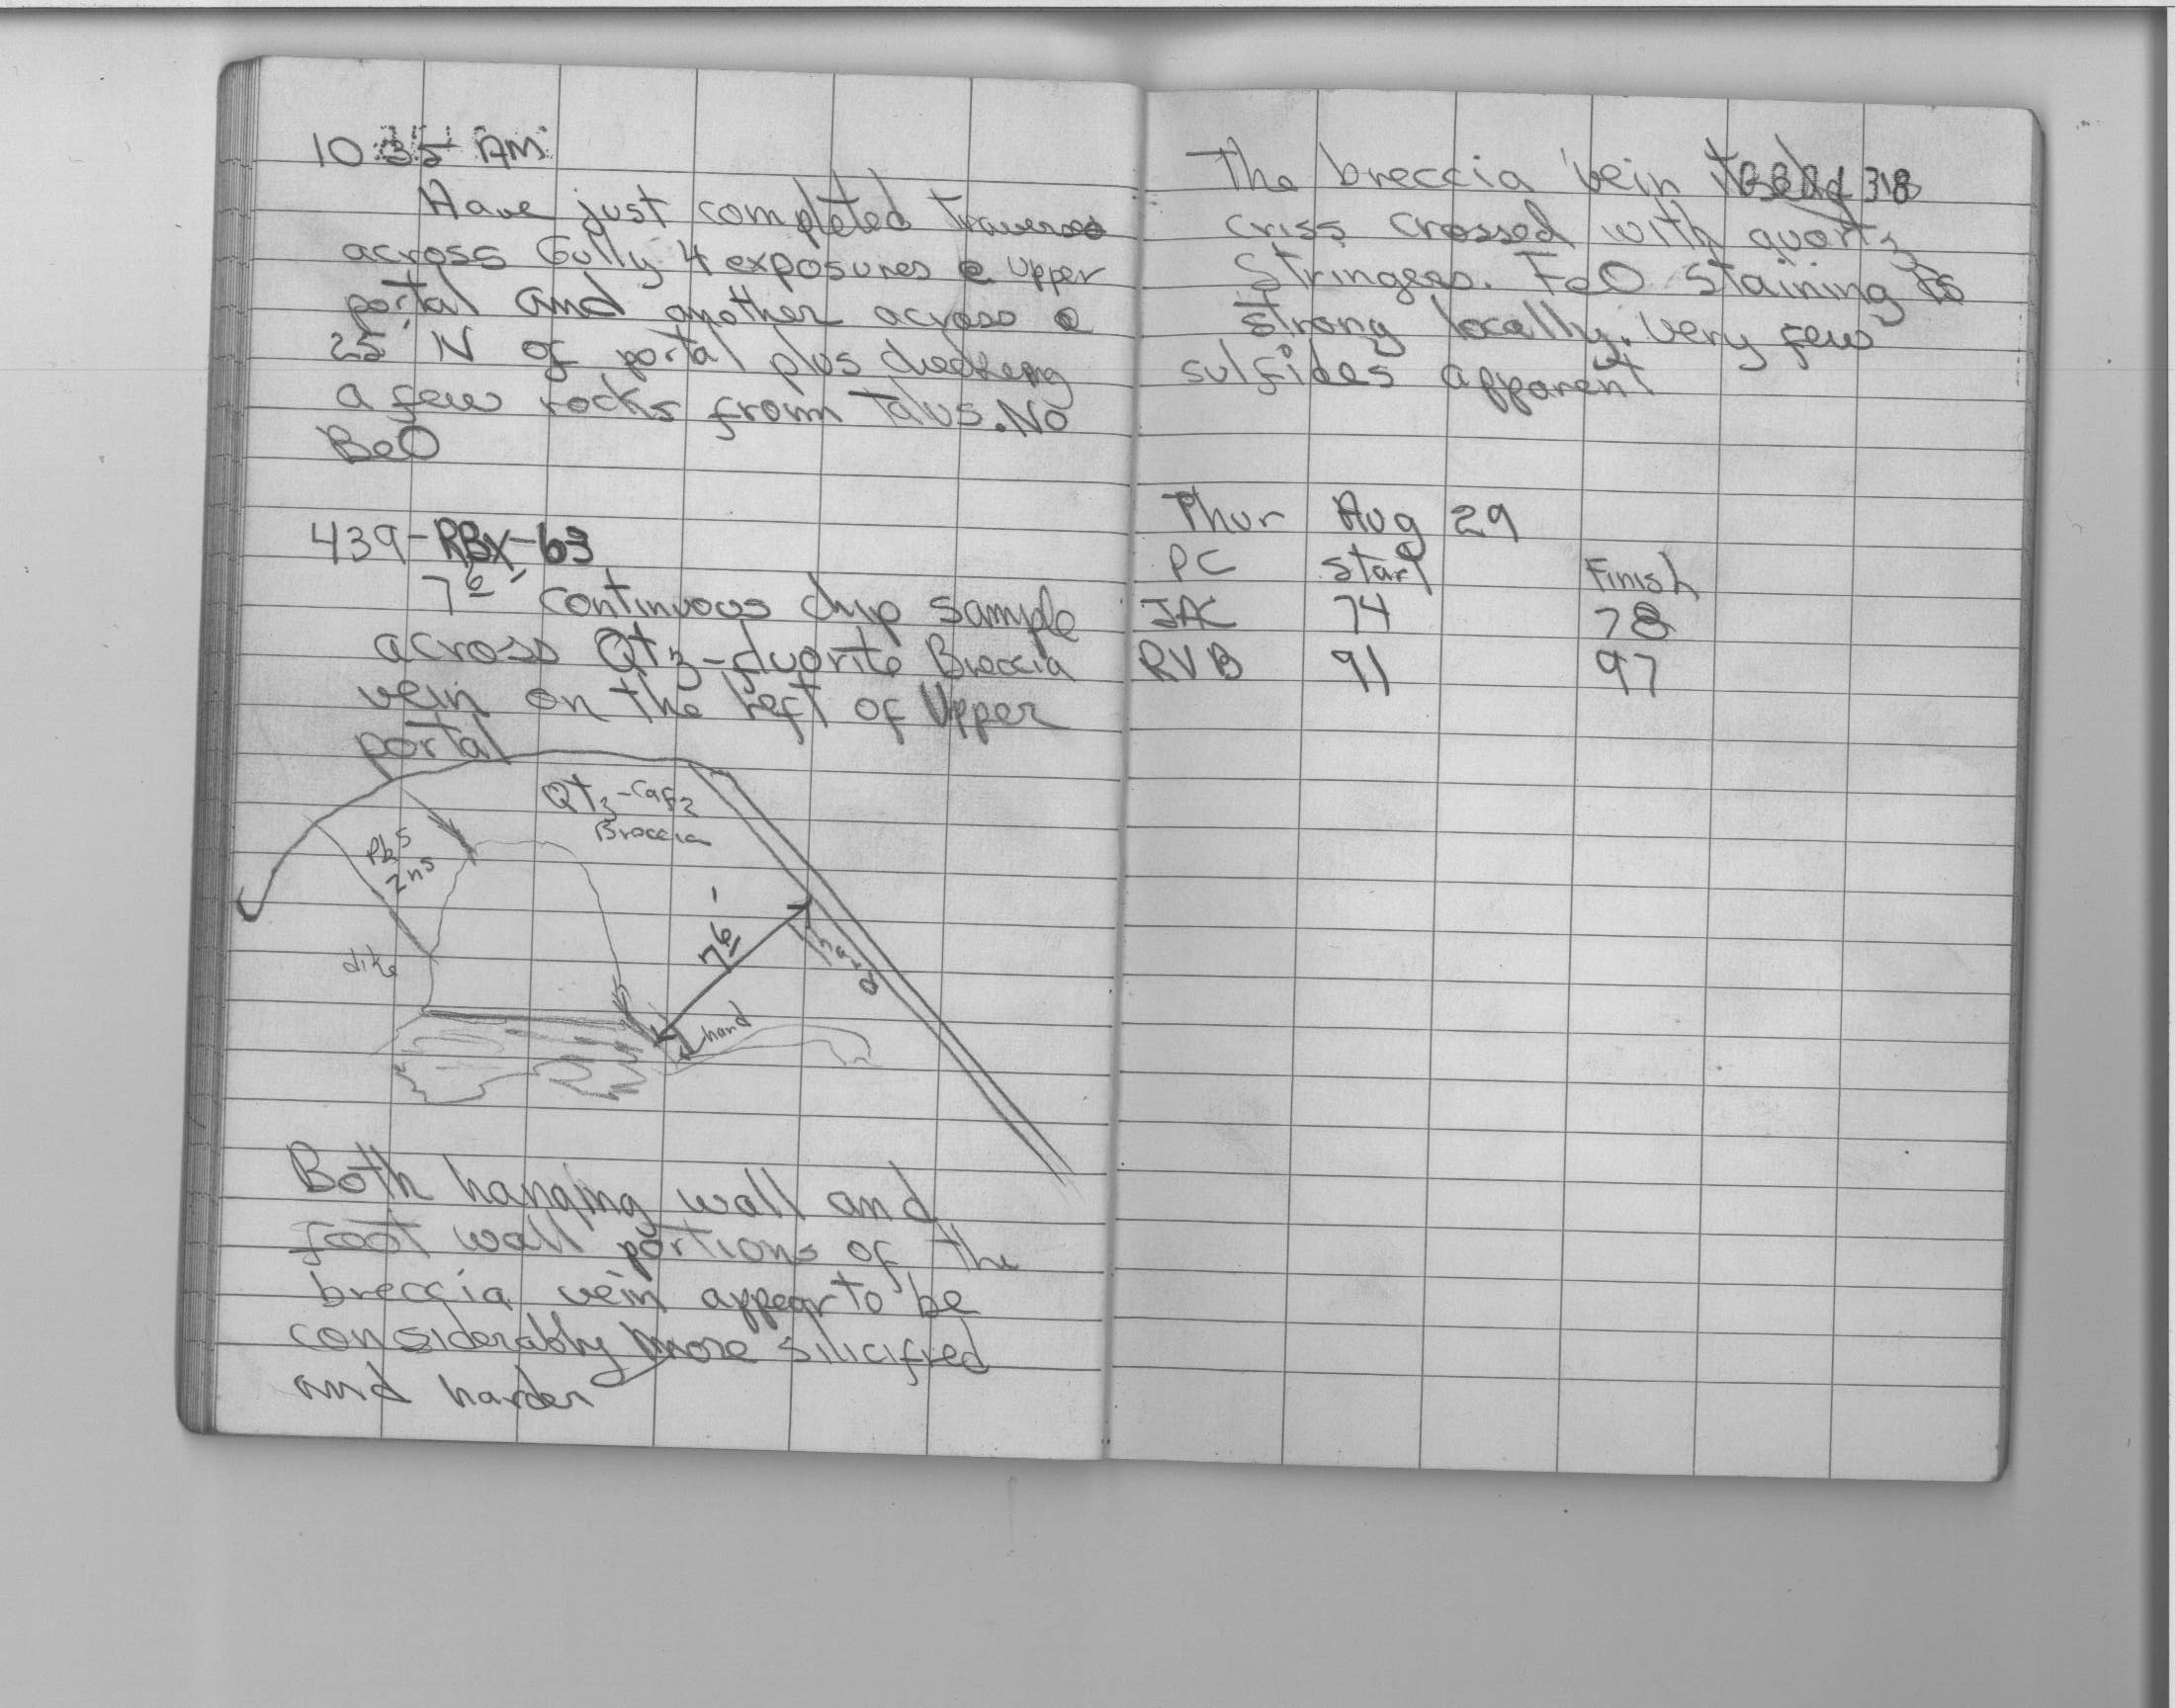 10 35 AM
Have just completed traverse
across Gully 4 exposures @ upper
portal and another across @
25' N of portal plus checking
a few rocks from Talus. No
BeO
439-RBX-63
7 6' continuous chip sample
across Qtz-fluorite Breccia
vein on the left of Upper
portal
Qtz-CaF2
Breccia
PbS
ZnS
7 6'
hard
dike
hard
Both hanging wall and
foot wall portions of the
breccia vein appear to be
considerably more silicified
and harder
The breccia vein itself is
criss crossed with quartz
Stringers. FeO staining is
strong locally. Very few
sulfides apparent
Thur Aug 29
PC Start Finish
JAC 74 78
RVB 91 97